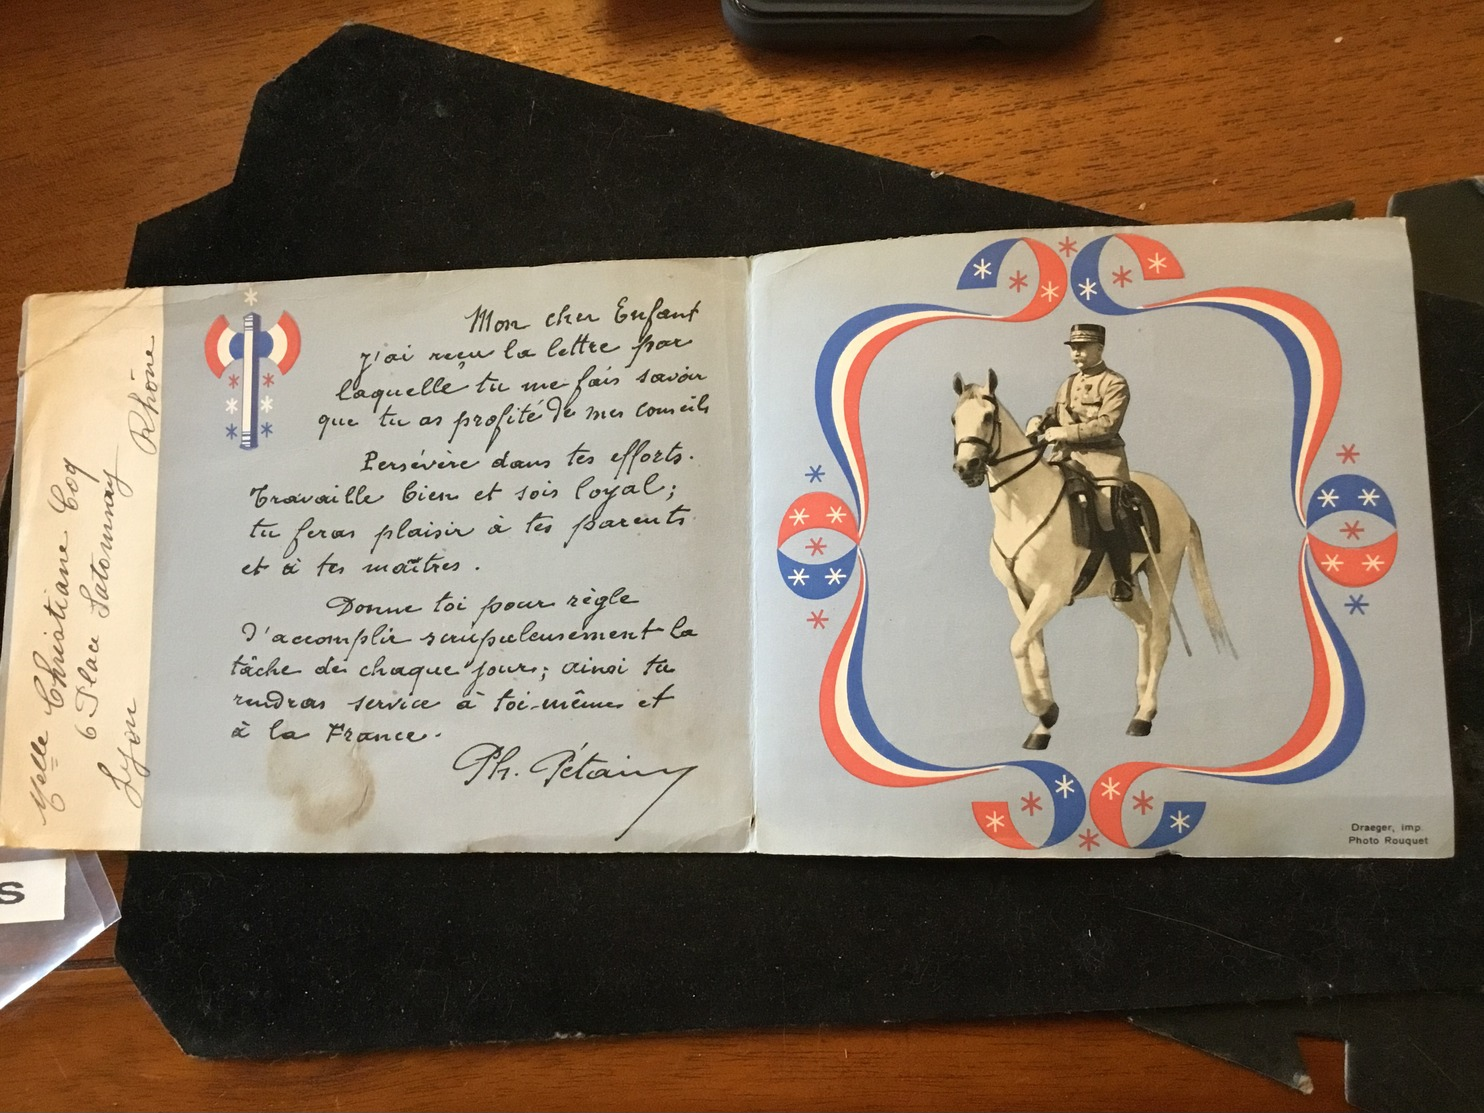 Melle Christiane Coq
6 Place Satonnay
Lyon Rhône
Mon cher Enfant
j'ai reçu la lettre par
laquelle tu me fais savoir
que tu as profité de mes conseils
Persévère dans tes efforts.
Travaille bien et sois loyal ;
tu feras plaisir à tes parents
et à tes maîtres .
Donne toi pour règle
d'accomplir scrupuleusement la
tâche de chaque jour ; ainsi tu
rendras service à toi-même et
à la France .
Ph. Pétain
Draeger, imp.
Photo Rouquet
S